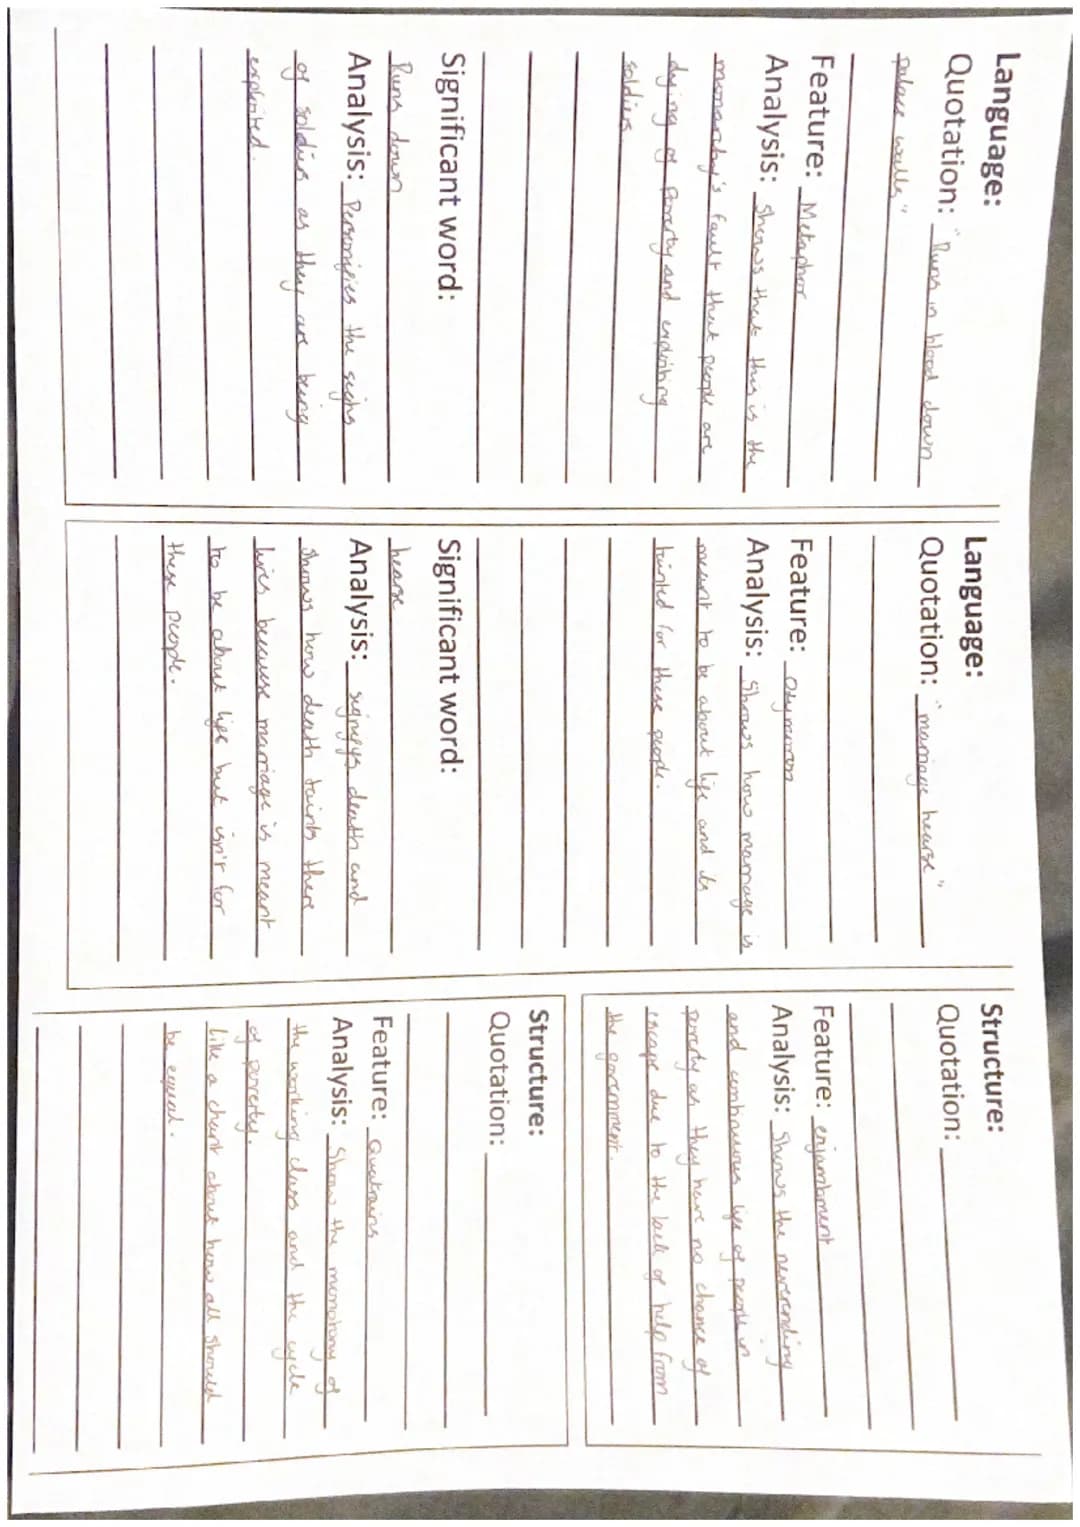 Language:
Quotation: "Runs in blood down
palace walls"
Feature: Metaphor
Analysis: Shows that this is the
monarchy's fault that people are
dying of poverty and exploiting
soldiers
Significant word:
Runs down
Analysis: Personifies the sighs
of soldiers as they are being
exploited.
Language:
Quotation: "marriage hearse"
Feature: Oxymoron
Analysis: Shows how marriage is
meant to be about life and its
tainted for these people.
Significant word:
hearse
Analysis: signifys death and
shows how death taints there
lives because marriage is meant
to be about life but isn't for
these people.
Structure:
Quotation:
Feature: enjambment
Analysis: Shows the neverending
and life of people in
poverty as they have no chance of
escape due to the lack of help from
the goverment.
Structure:
Quotation:
Feature: Quatrains
Analysis: Shows the monotony of
the working class and the cycle
of poverty.
like a chant about how all should
be equal.